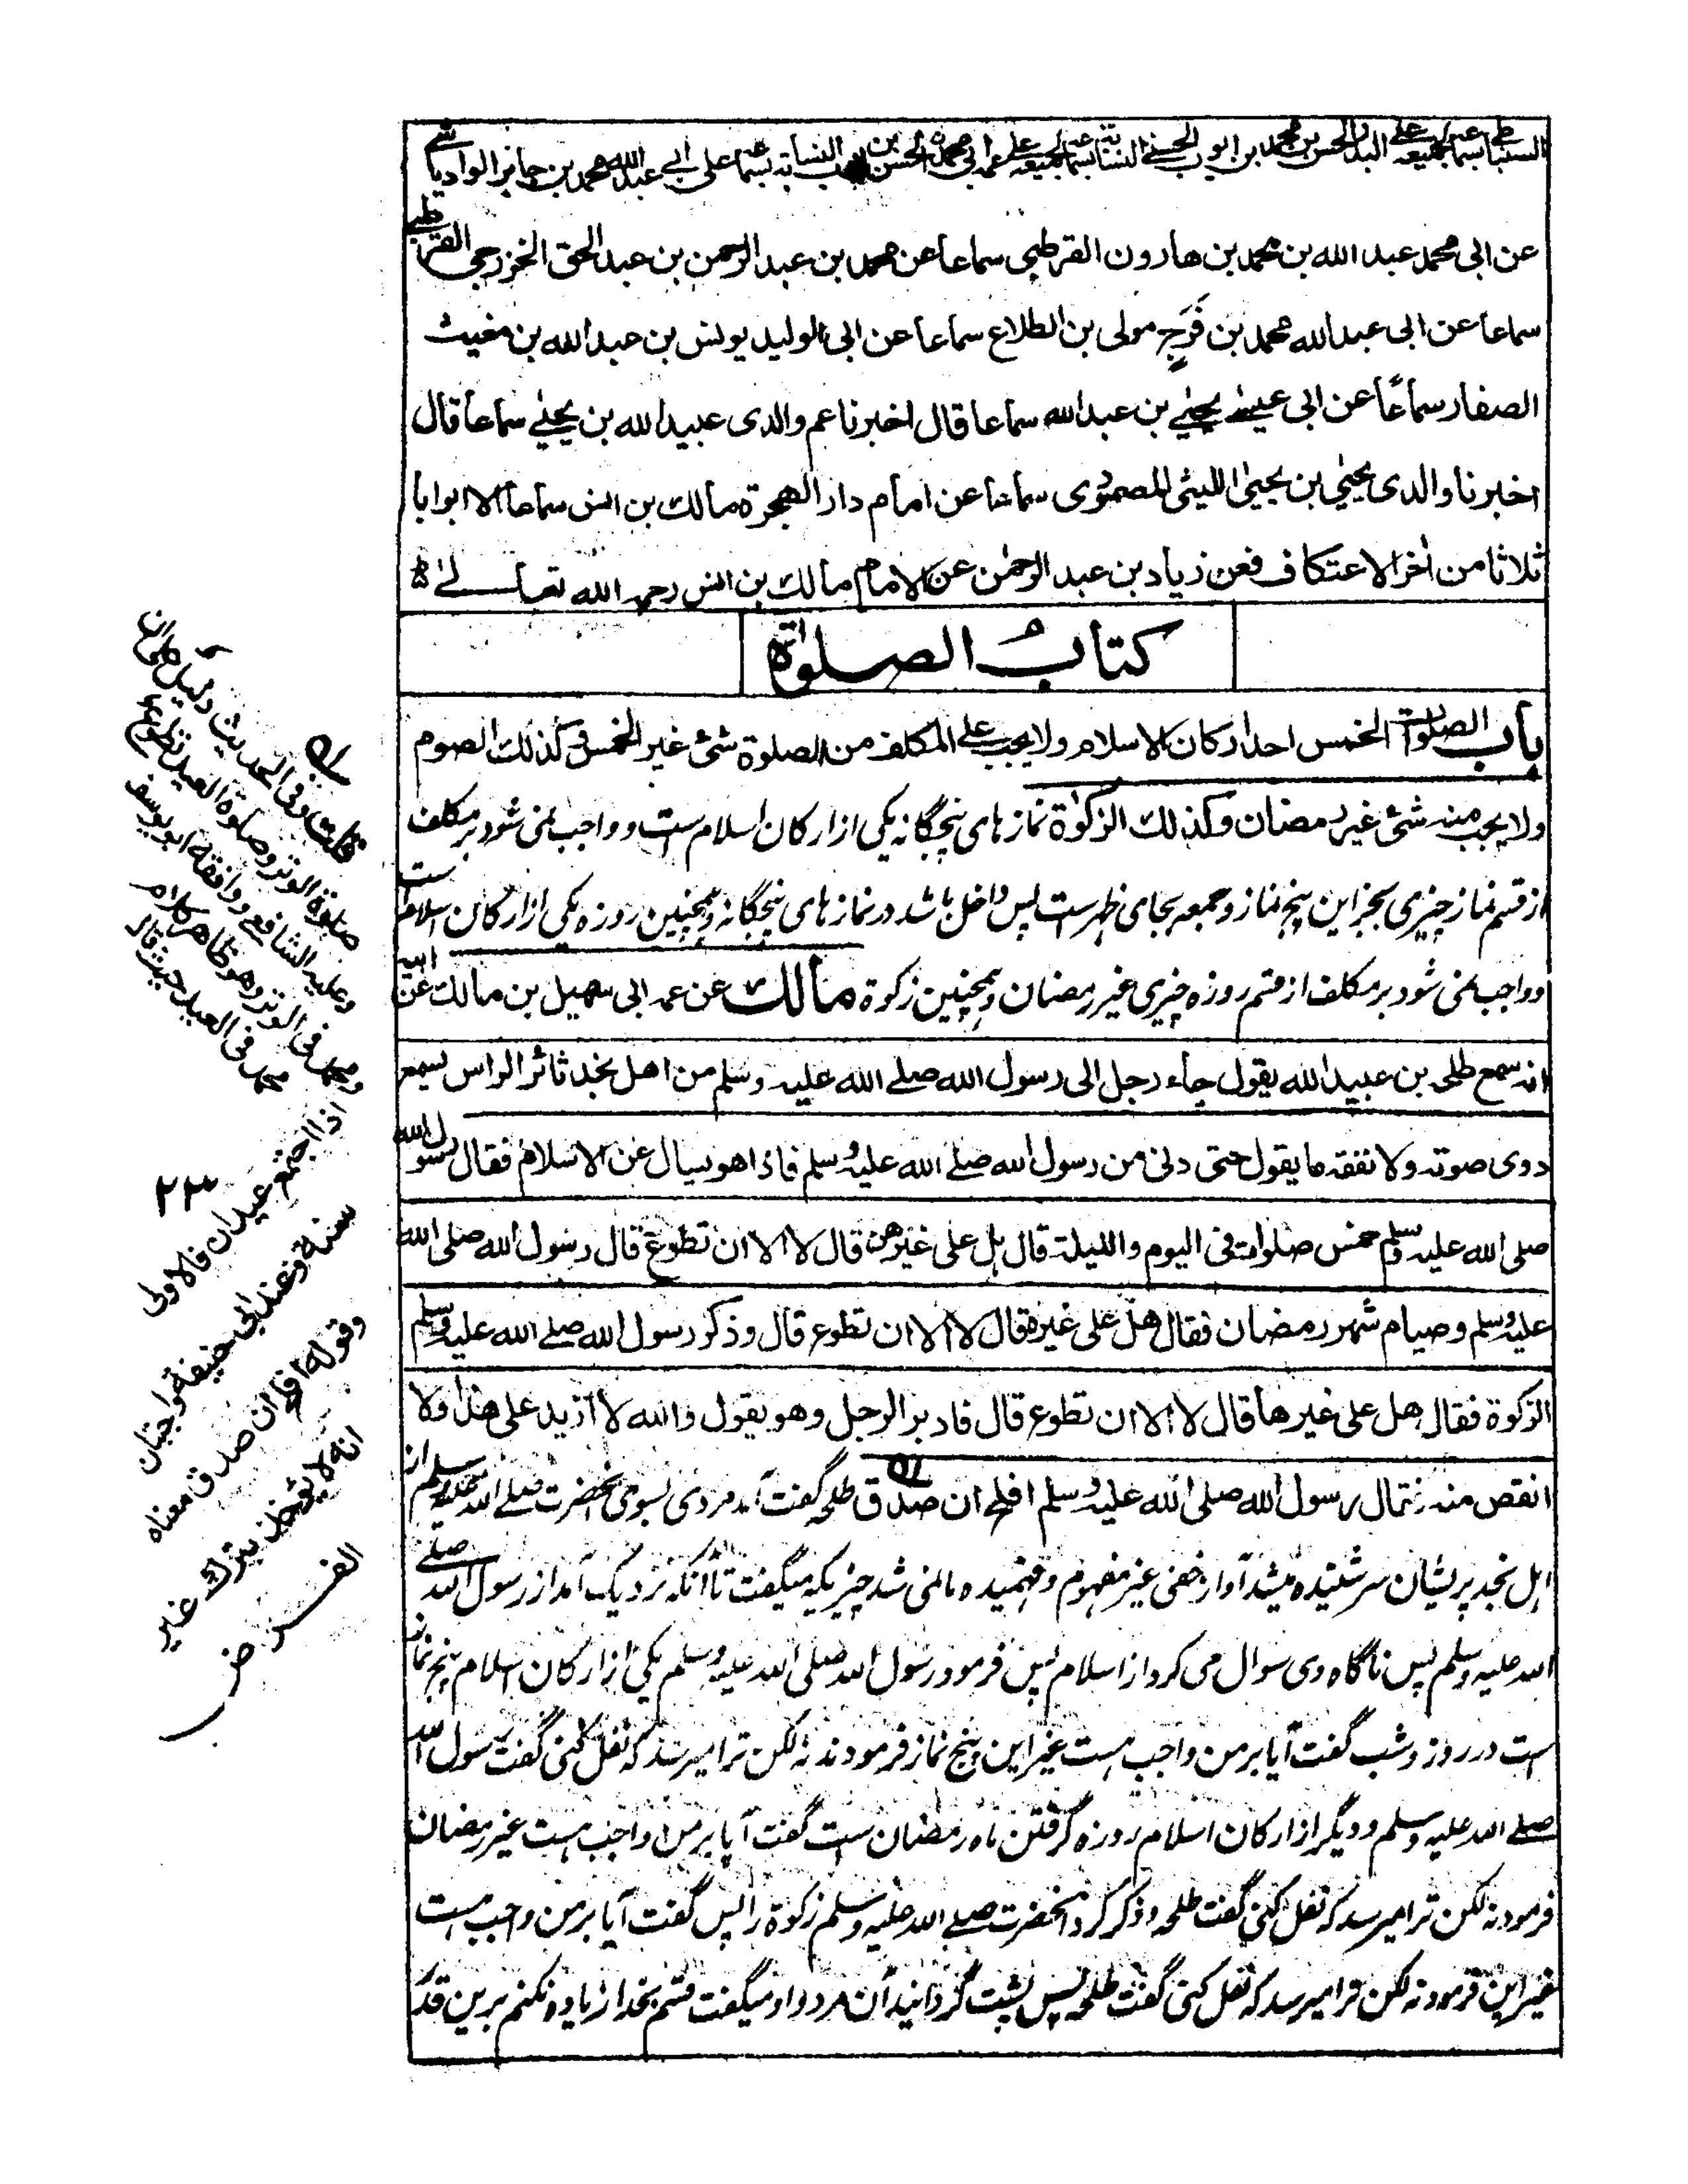 عن ابی محمد عبد الله بن محمد بن هارون القرطبی سماعا عن محمد بن عبد الرحمن بن عبد الحق الخزرجی القرطبی
سماعا عن ابی عبد الله محمد بن فرج مولی بن الطلاع سماعا عن ابی الولید یونس بن عبد الله بن مغیث
الصفار سماعا عن ابی عیسے یحیٰے بن عبد الله سماعا قال اخبرنا عم والدی عبید الله بن یحیٰے سماعا قال
اخبرنا والدی یحیٰی بن یحیٰی اللیثی المصمودی سماعا عن امام دار الهجرة مالک بن انس سماعا الا ابوابا
ثلاثا من اٰخر الاعتکاف فعن زیاد بن عبد الرحمٰن عن الامام مالک بن انس رحمه الله تعالےٰ
کتاب الصلوٰة
باب الصلوٰة الخمس احد ارکان الاسلام ولا یجب علی المکلف من الصلوة شئ غیر الخمس وکذلک الصوم
ولا یجب منه شئ غیر رمضان وکذلک الزکوٰة نماز های پنجگانه یکی از ارکان اسلام ست و واجب نمی شود بر مکلف
از قسم نماز چیزی بجز این پنج نماز و جمعه بجای ظهر ست پس داخل باشد در نماز های پنجگانه و همچنین روزه یکی از ارکان اسلام ست
و واجب نمی شود بر مکلف از قسم روزه چیزی غیر رمضان و همچنین زکوة مالک عن عمه ابی سهیل بن مالک عن ابیه
انه سمع طلحه بن عبید الله یقول جاء رجل الی رسول الله صلے الله علیه وسلم من اهل نجد ثائر الراس یسمع
دوی صوته ولا نفقه ما یقول حتی دنی من رسول الله صلے الله علیه وسلم فاذا هو یسال عن الاسلام فقال رسول الله
صلی الله علیه وسلم خمس صلوات فی الیوم واللیلة قال هل علی غیرهن قال لا الا ان تطوع قال رسول الله صلی الله
علیه وسلم وصیام شهر رمضان فقال هل علی غیره قال لا الا ان تطوع قال وذکر رسول الله صلے الله علیه وسلم
الزکوة فقال هل علی غیرها قال لا الا ان تطوع قال فادبر الرجل وهو یقول والله لا ازید علی هذا ولا
انقص منه فقال رسول الله صلی الله علیه وسلم افلح ان صدق طلحه گفت آمد مردی بسوی آنحضرت صلے الله علیه وسلم از
اهل نجد پریشان سر شنیده میشد آواز خفی غیر مفهوم و فهمیده ما نمی شد چیزیکه میگفت تا آنکه نزدیک آمد از رسول الله صلے
الله علیه وسلم پس ناگاه وی سوال می کرد از اسلام پس فرمود رسول الله صلی الله علیه وسلم یکی از ارکان اسلام پنج نماز
ست در روز و شب گفت آیا بر من واجب هست غیر این پنج نماز فرمودند نه لکن ترا میرسد که نفل کنی گفت رسول الله
صلے الله علیه وسلم و دیگر از ارکان اسلام روزه گرفتن ماه رمضان ست گفت آیا بر من واجب هست غیر رمضان
فرمود نه لکن ترا میرسد که نفل کنی گفت طلحه و ذکر کرد آنحضرت صلے الله علیه وسلم زکوة را پس گفت آیا بر من واجب هست
غیر این فرمود نه لکن ترا میرسد که نفل کنی گفت طلحه پس پشت گردانید آن مرد و او میگفت قسم بخدا زیاده نکنم برین قدر
قلت وفی الحدیث دلیل علی ان
صلوة الوتر وصلوة العید تطوع
وعلیه الشافعی ووافقه ابو یوسف
ومحمد فی الوتر وهو ظاهر کلام
محمد فی العید حیث قال
اذا اجتمع عیدان فالاولی
سنة وعند ابی حنیفة واجبتان
وقوله افلح ان صدق معناه
انه لا یؤخذ بترک غیر
الفرض